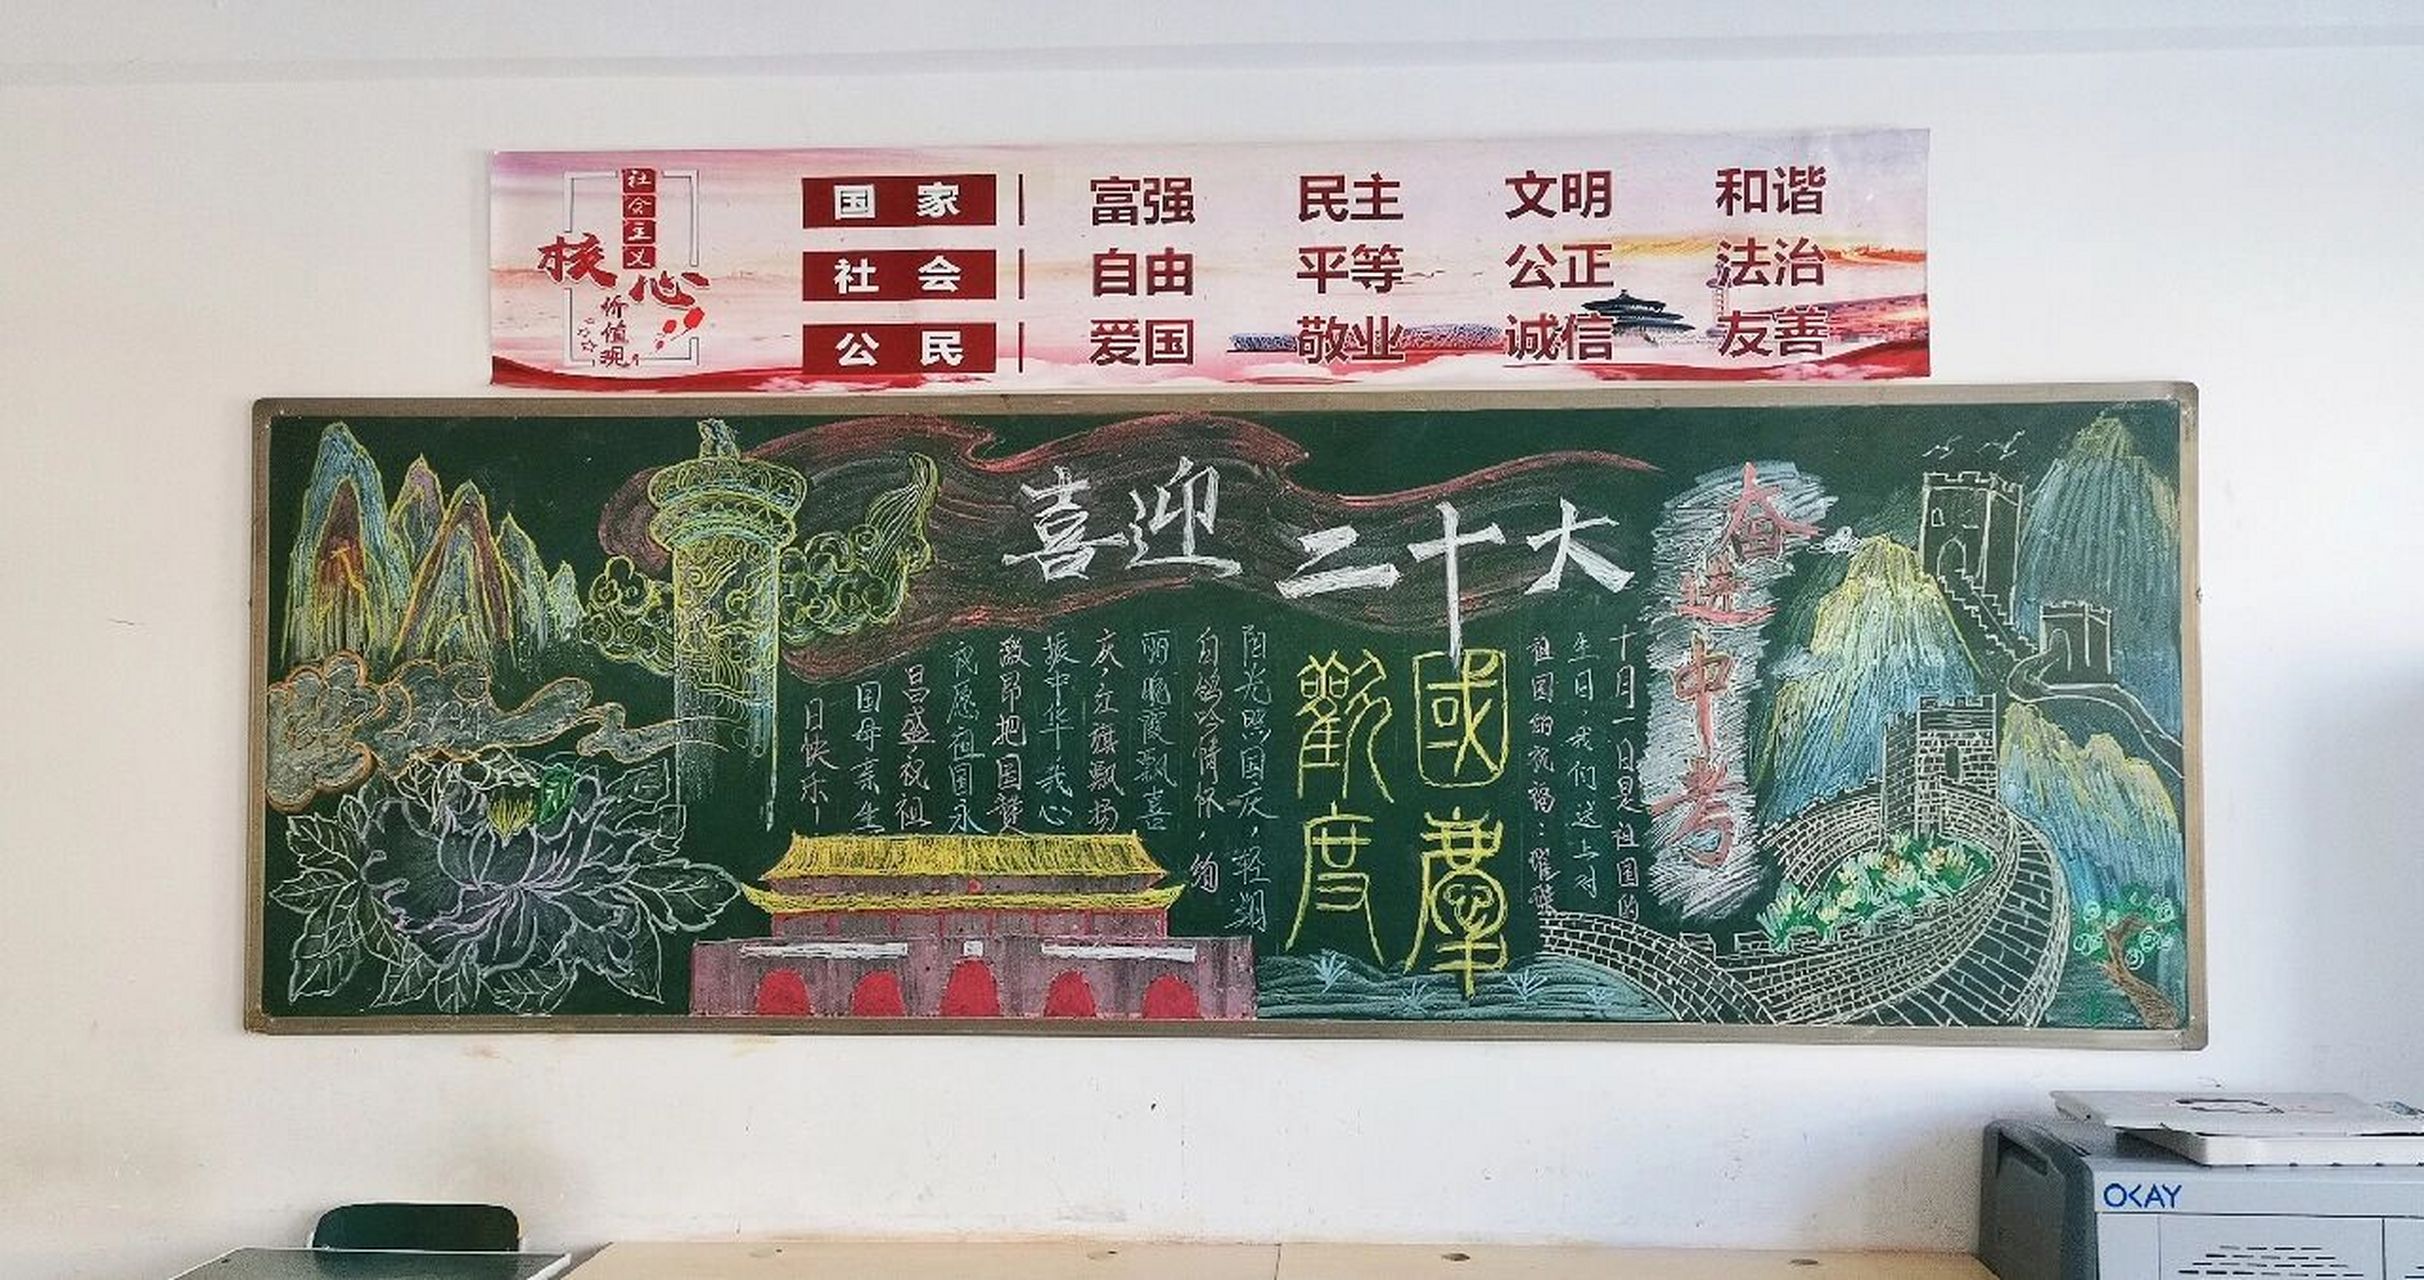 社会主义
核心
价值观
国家 | 富强 民主 文明 和谐
社会 | 自由 平等 公正 法治
公民 | 爱国 敬业 诚信 友善
喜迎二十大
奋进中考
十月一日是祖国的
生日,我们送上对
祖国的祝福:璀璨
國慶
歡度
阳光照国庆,轻翔
白鸽吟情怀,绚
丽晚霞飘喜
庆,红旗飘扬
振中华,我心
激昂把国赞
祝愿祖国永
昌盛,祝祖
国母亲生
日快乐.
OKAY